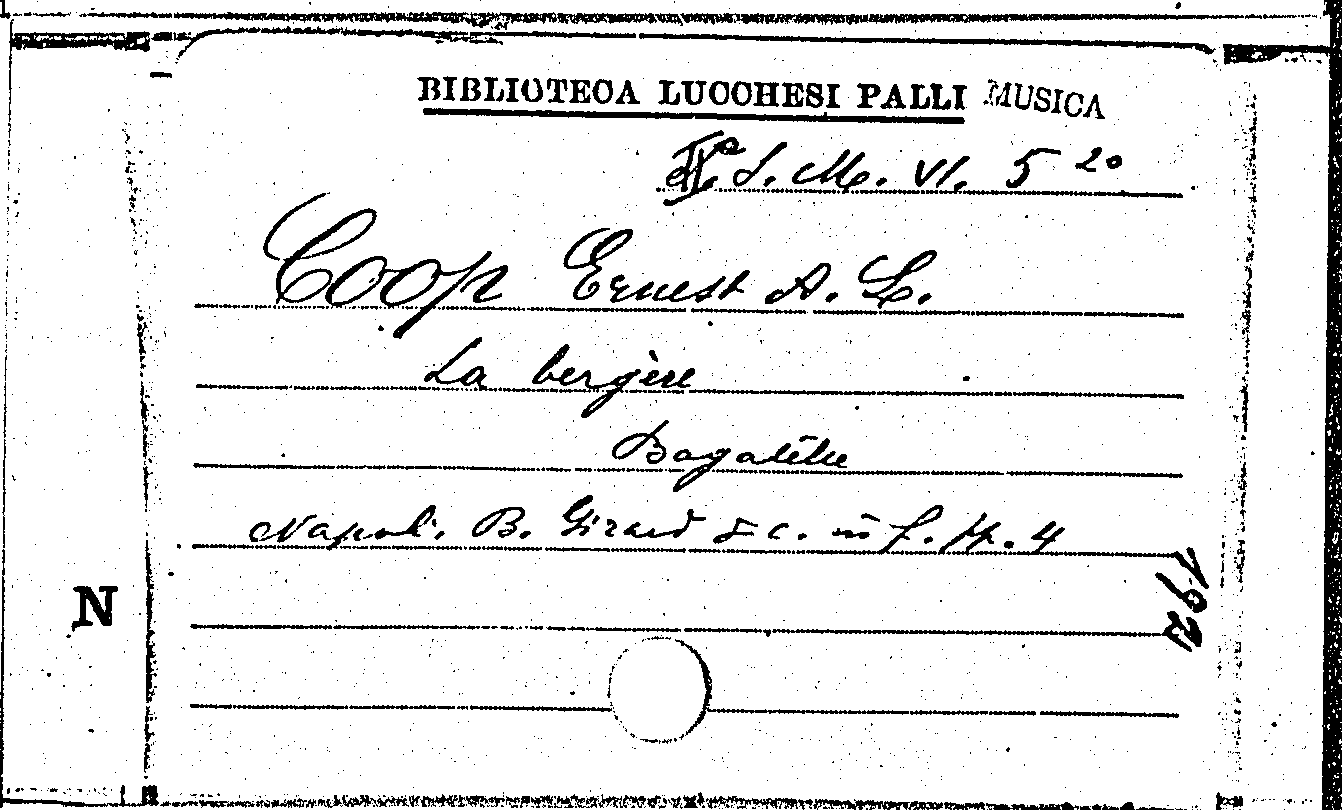 BIBLIOTECA LUCCHESI PALLI MUSICA
S. M. VI. 5 20
Coop Ernest A. L.
La bergère
Bagatelle
Napoli. B. Girard & c. in f. pp. 4
192
N